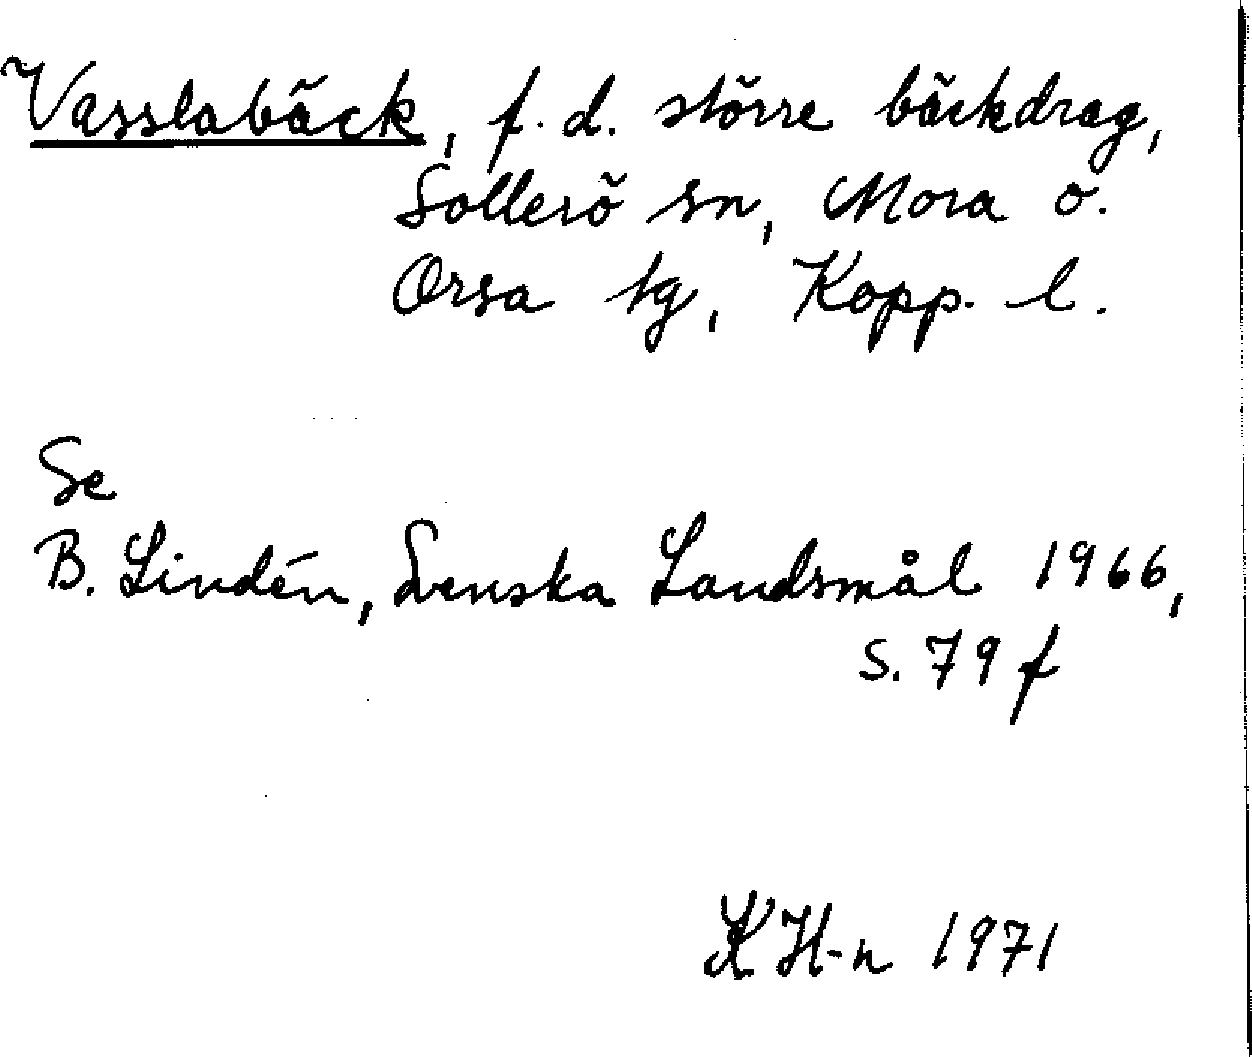 Vasslabäck, f.d. större bäckdrag,
Sollerö sn, Mora o.
Orsa tg, Kopp. l.
Se
B. Lindén, Svenska Landsmål 1966,
s. 79 f
KH-n 1971